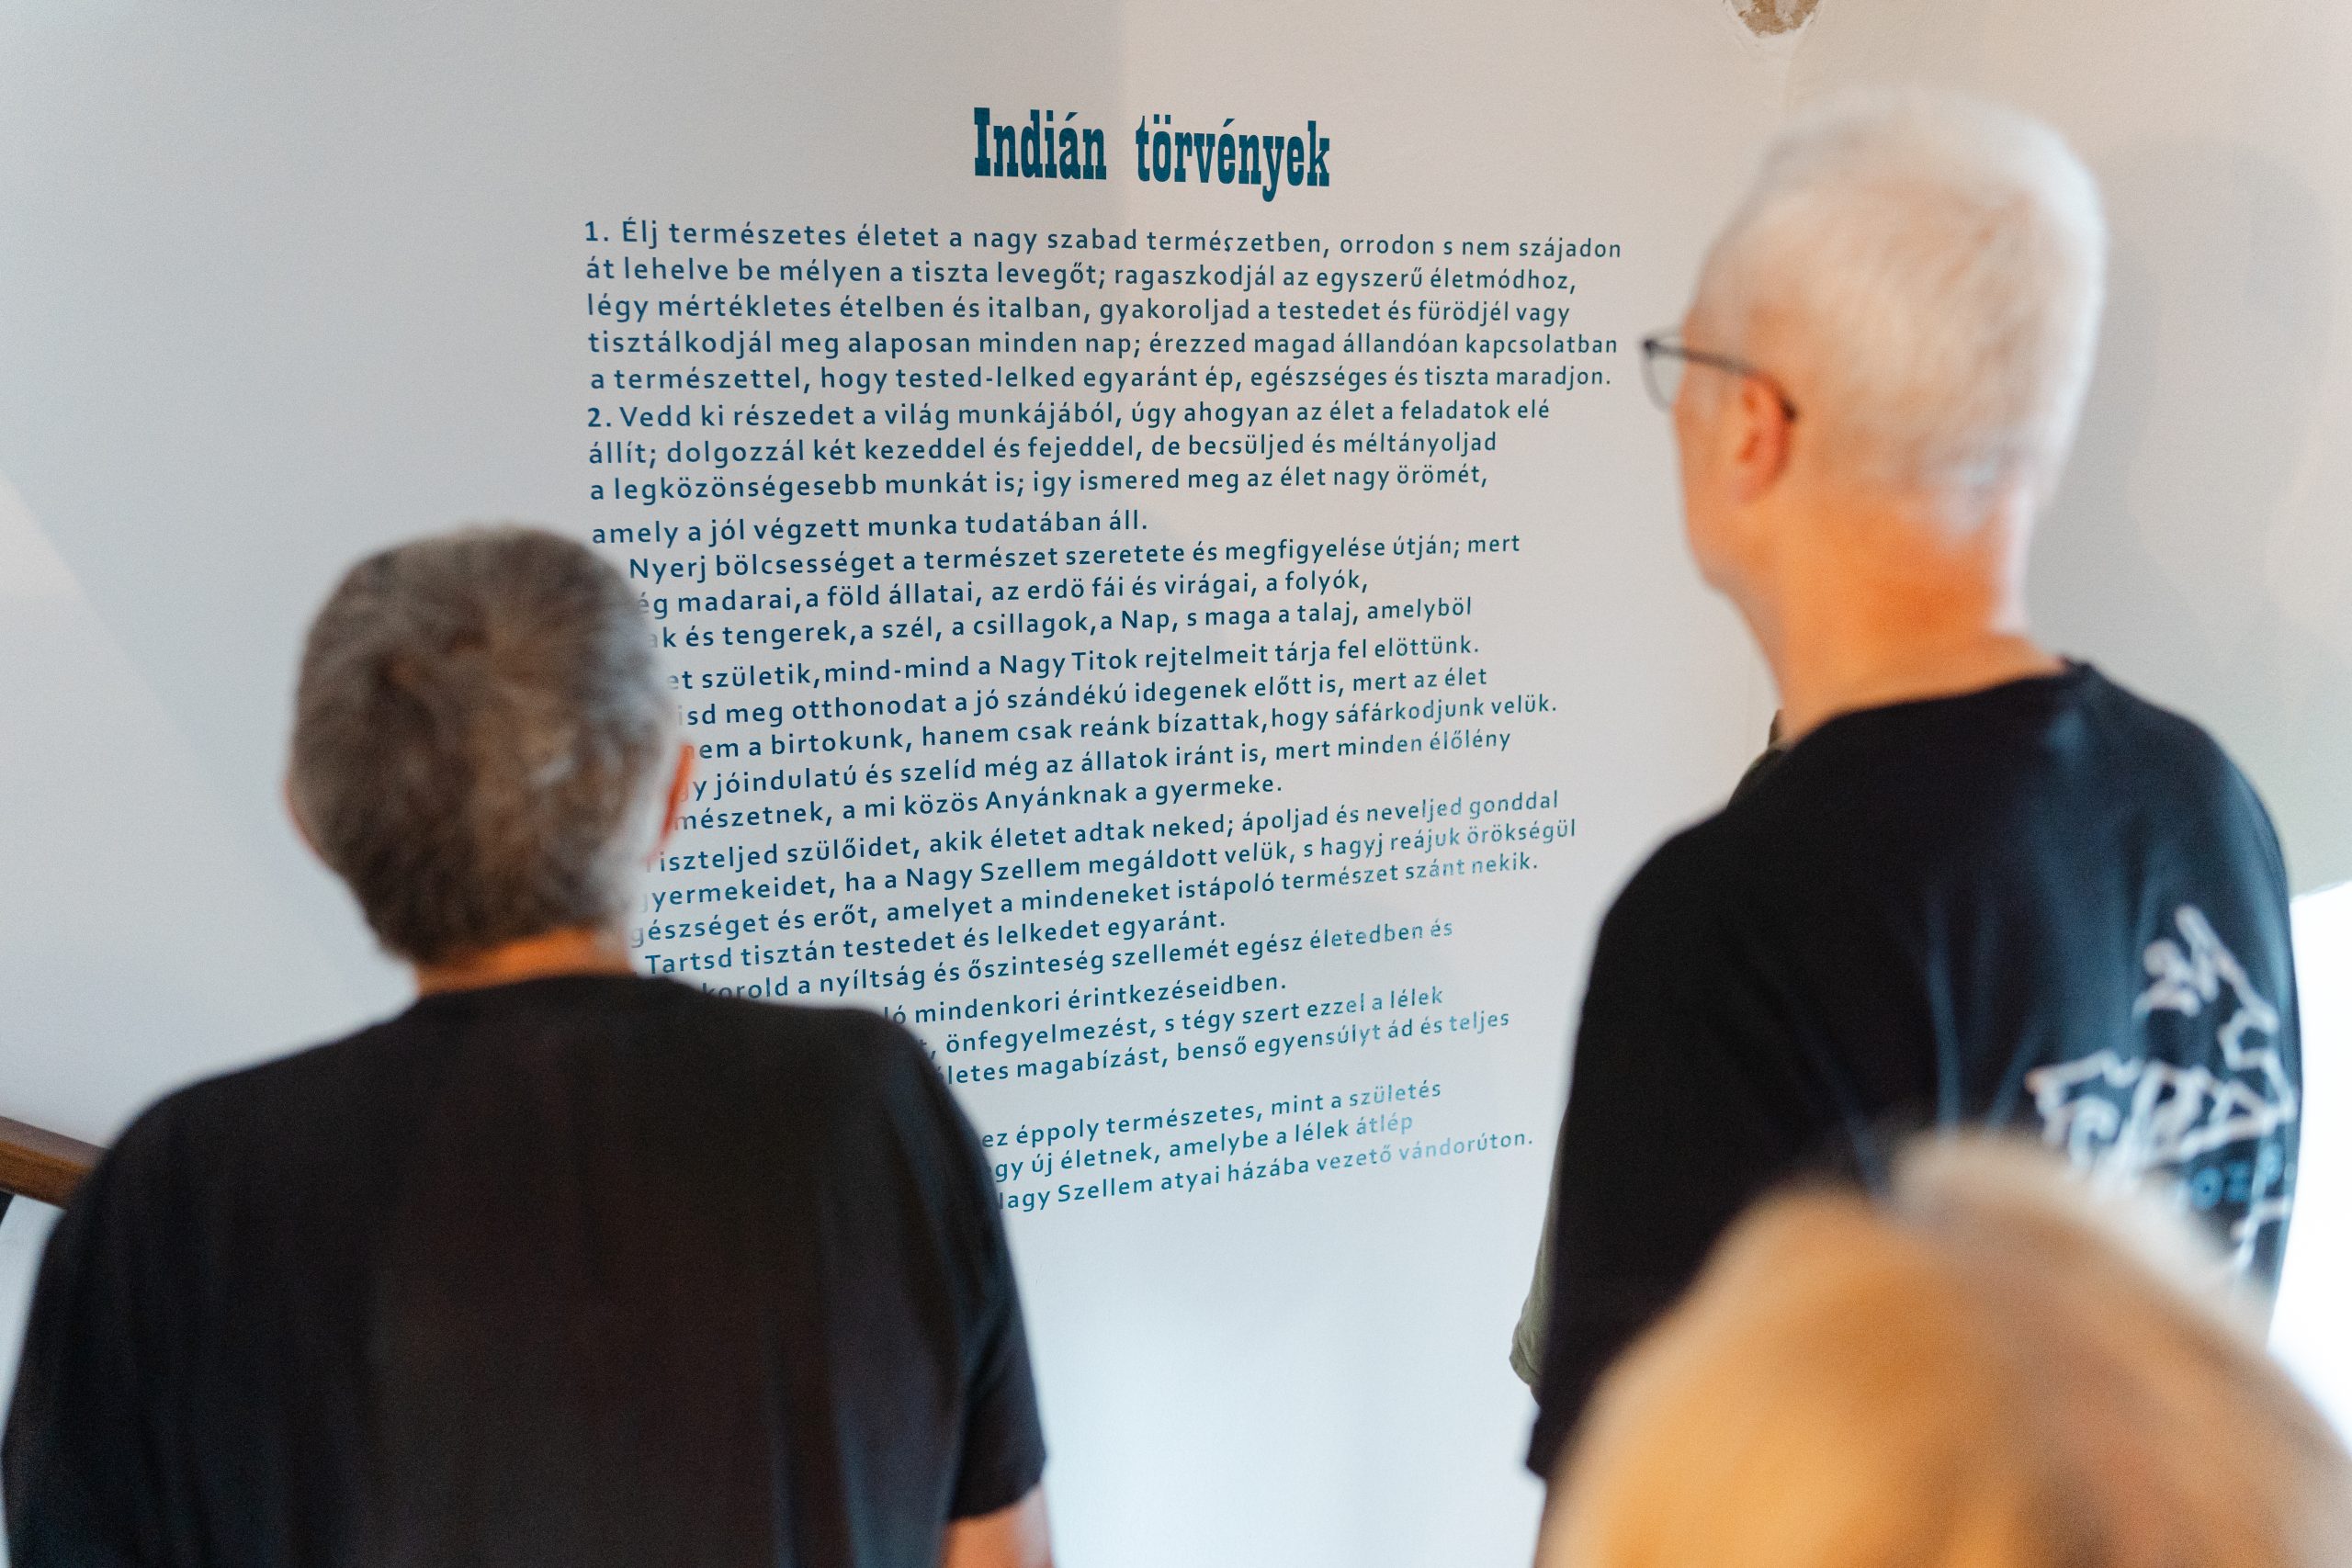 Indián törvények
1. Élj természetes életet a nagy szabad természetben, orrodon s nem szájadon
át lehelve be mélyen a tiszta levegőt; ragaszkodjál az egyszerű életmódhoz,
légy mértékletes ételben és italban, gyakoroljad a testedet és fürödjél vagy
tisztálkodjál meg alaposan minden nap; érezzed magad állandóan kapcsolatban
a természettel, hogy tested-lelked egyaránt ép, egészséges és tiszta maradjon.
2. Vedd ki részedet a világ munkájából, úgy ahogyan az élet a feladatok elé
állít; dolgozzál két kezeddel és fejeddel, de becsüljed és méltányoljad
a legközönségesebb munkát is; igy ismered meg az élet nagy örömét,
amely a jól végzett munka tudatában áll.
Nyerj bölcsességet a természet szeretete és megfigyelése útján; mert
madarai,a föld állatai, az erdö fái és virágai, a folyók,
és tengerek,a szél, a csillagok,a Nap, s maga a talaj, amelyböl
születik,mind-mind a Nagy Titok rejtelmeit tárja fel elöttünk.
meg otthonodat a jó szándékú idegenek előtt is, mert az élet
nem a birtokunk, hanem csak reánk bízattak,hogy sáfárkodjunk velük.
jóindulatú és szelíd még az állatok iránt is, mert minden élőlény
a mi közös Anyánknak a gyermeke.
szülőidet, akik életet adtak neked; ápoljad és neveljed gonddal
gyermekeidet, ha a Nagy Szellem megáldott velük, s hagyj reájuk örökségül
és erőt, amelyet a mindeneket istápoló természet szánt nekik.
Tartsd tisztán testedet és lelkedet egyaránt.
a nyíltság és őszinteség szellemét egész életedben és
mindenkori érintkezéseidben.
önfegyelmezést, s tégy szert ezzel a lélek
magabízást, benső egyensúlyt ád és teljes
ez éppoly természetes, mint a születés
új életnek, amelybe a lélek átlép
Nagy Szellem atyai házába vezető vándorúton.